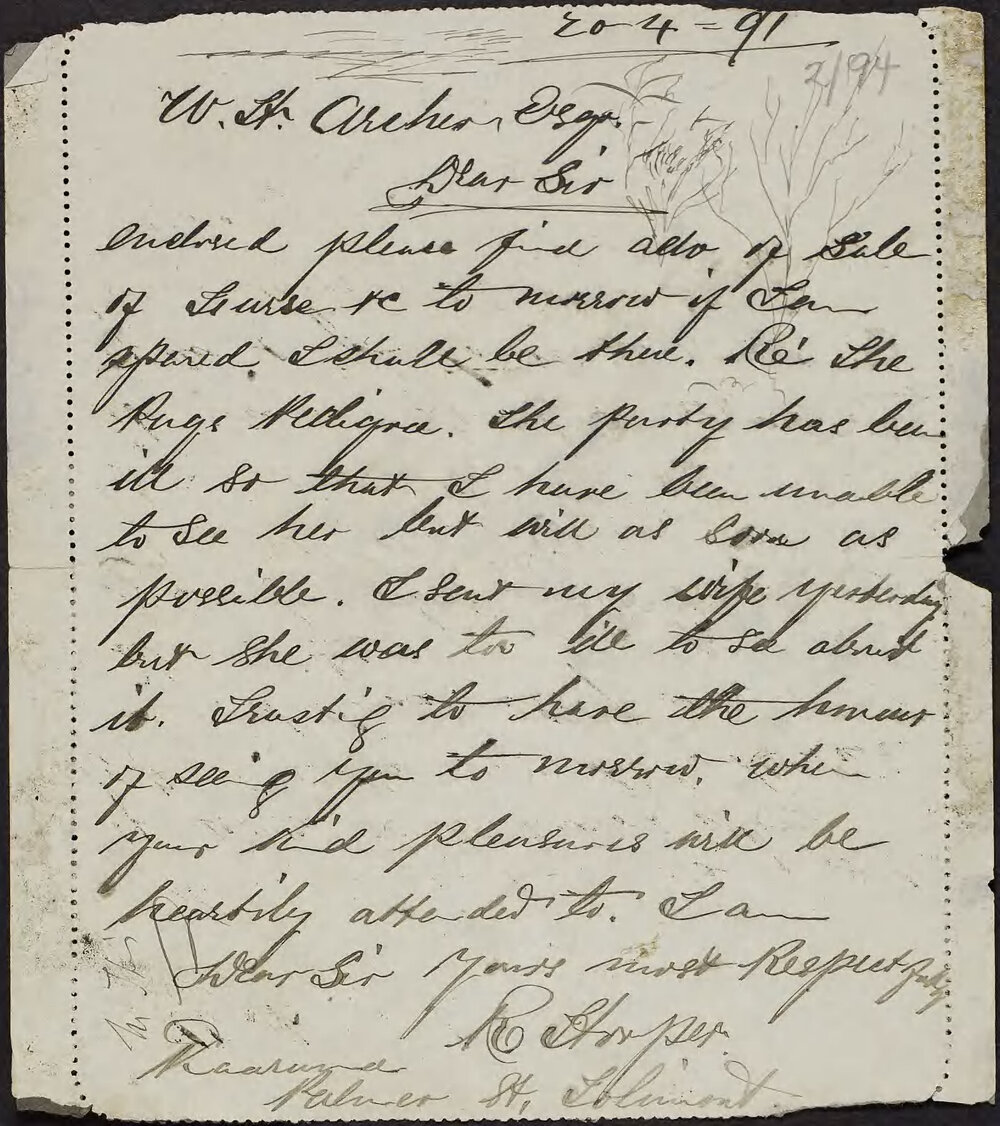 20-4-91
2/94
W. H. Archer, Esqr.
Dear Sir
enclosed please find adv of Sale
of &c to morrow if I am
spared I shall be there. Re the
Pugs Pedigree. The party has been
ill so that I have been unable
to see her but will as soon as
possible. I sent my wife yesterday
but she was too ill to see about
it. Trusting to have the honour
of seeing you to morrow, when
your kind pleasures will be
heartily attended to. I am
Dear Sir Yours most Respectfully
R Hooper
Palmer St, Jolimont